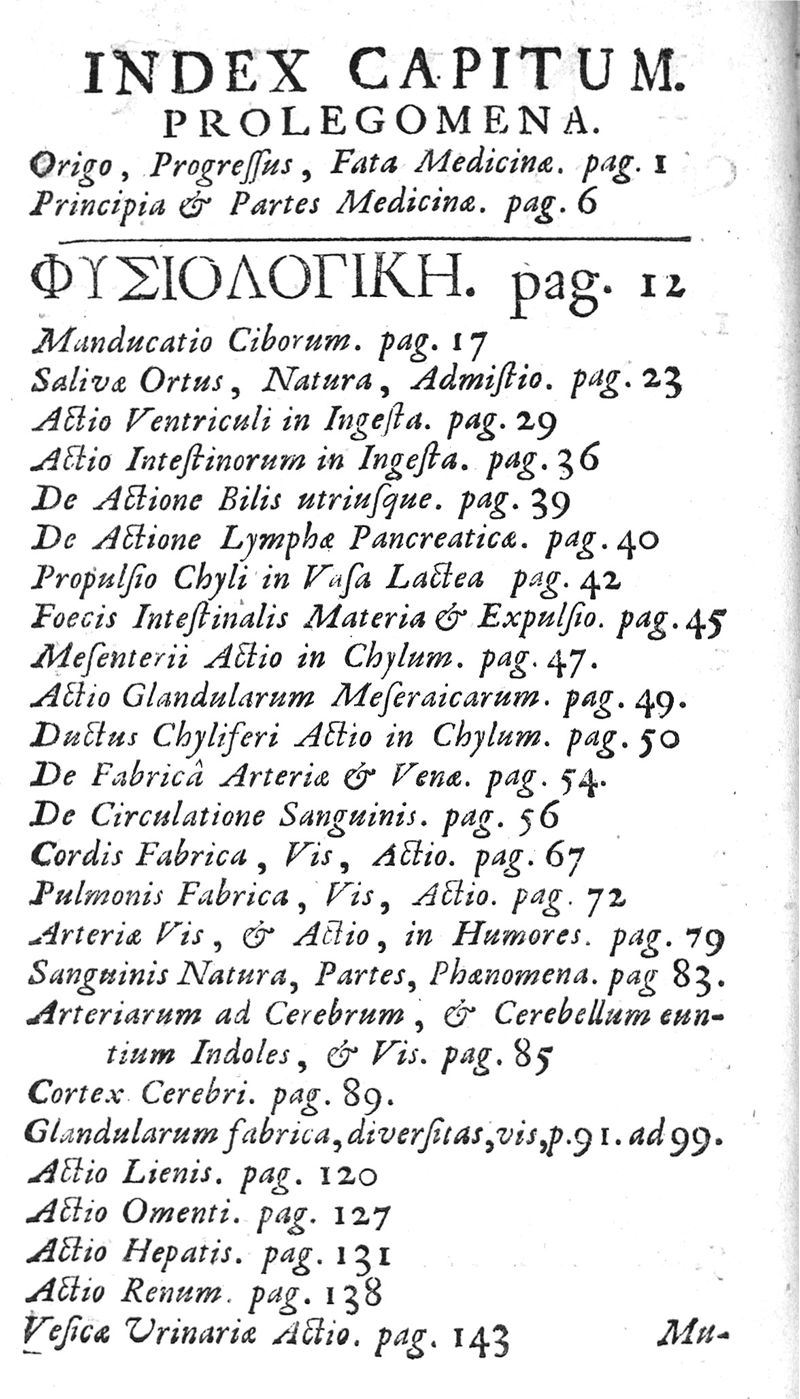 INDEX CAPITUM.
PROLEGOMENA.
Origo, Progreſſus, Fata Medicinæ. pag. 1
Principia & Partes Medicinæ. pag. 6
ΦΥΣΙΟΛΟΓΙΚΗ. pag. 12
Manducatio Ciborum. pag. 17
Salivæ Ortus, Natura, Admiſtio. pag. 23
Actio Ventriculi in Ingeſta. pag. 29
Actio Inteſtinorum in Ingeſta. pag. 36
De Actione Bilis utriuſque. pag. 39
De Actione Lymphæ Pancreaticæ. pag. 40
Propulſio Chyli in Vaſa Lactea pag. 42
Foecis Inteſtinalis Materia & Expulſio. pag. 45
Meſenterii Actio in Chylum. pag. 47.
Actio Glandularum Meſeraicarum. pag. 49.
Ductus Chyliferi Actio in Chylum. pag. 50
De Fabricâ Arteriæ & Venæ. pag. 54.
De Circulatione Sanguinis. pag. 56
Cordis Fabrica, Vis, Actio. pag. 67
Pulmonis Fabrica, Vis, Actio. pag. 72
Arteriæ Vis, & Actio, in Humores. pag. 79
Sanguinis Natura, Partes, Phænomena. pag 83.
Arteriarum ad Cerebrum, & Cerebellum eun-
tium Indoles, & Vis. pag. 85
Cortex Cerebri. pag. 89.
Glandularum fabrica, diverſitas, vis, p. 91. ad 99.
Actio Lienis. pag. 120
Actio Omenti. pag. 127
Actio Hepatis. pag. 131
Actio Renum. pag. 138
Veſicæ Urinariæ Actio. pag. 143
Mu-